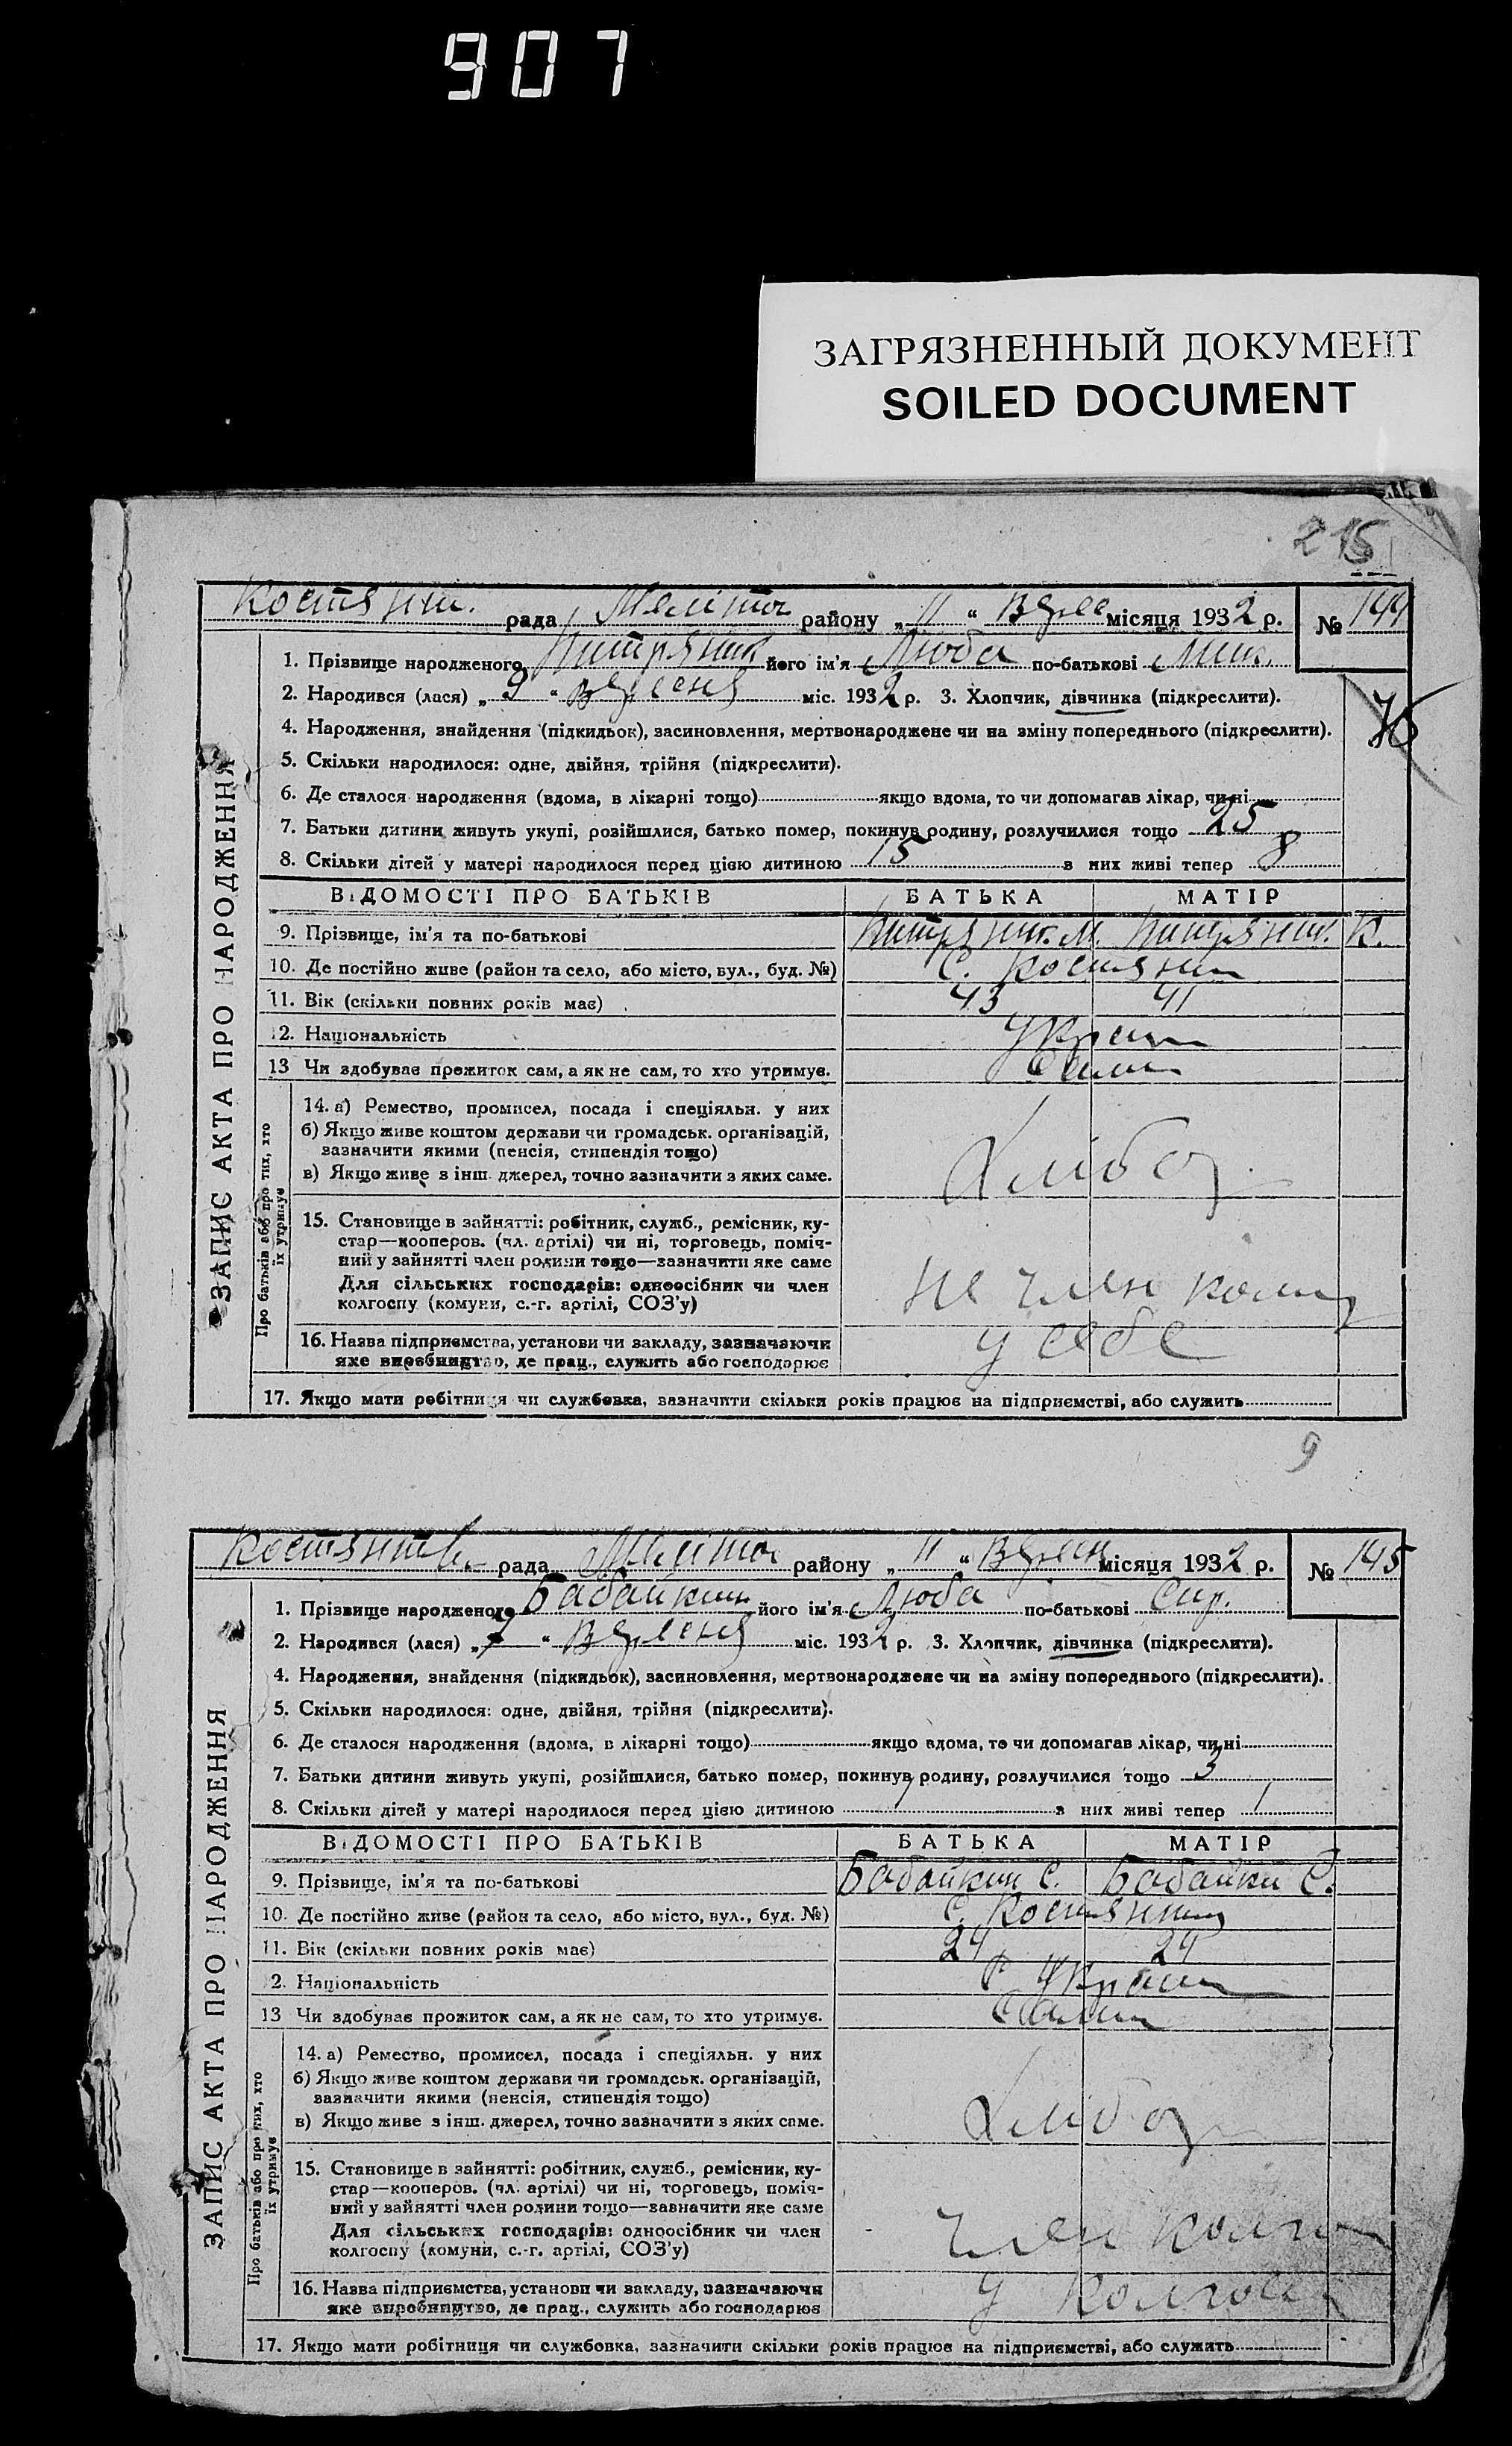 907
ЗАГРЯЗНЕННЫЙ ДОКУМЕНТ
SOILED DOCUMENT
215
Костянт. рада Меліто району „ 11 “ Верес місяця 1932 р. № 144
1. Прізвище народженого його ім'я Люба по-батькові Мик.
2. Народився (лася) „ 9 “ Вересня міс. 1932 р. 3. Хлопчик, дівчинка (підкреслити).
4. Народження, знайдення (підкидьок), засиновлення, мертвонароджене чи на зміну попереднього (підкреслити).
5. Скільки народилося: одне, двійня, трійня (підкреслити).
6. Де сталося народження (вдома, в лікарні тощо) якщо вдома, то чи допомагав лікар, чи ні
7. Батьки дитини живуть укупі, розійшлися, батько помер, покинув родину, розлучилися тощо 25
8. Скільки дітей у матері народилося перед цією дитиною 15 з них живі тепер 8
ВІДОМОСТІ ПРО БАТЬКІВ БАТЬКА МАТІР
9. Прізвище, ім'я та по-батькові
10. Де постійно живе (район та село, або місто, вул., буд. №) С. Костянт
11. Вік (скільки повних років має) 43 41
12. Національність Украин
13 Чи здобуває прожиток сам, а як не сам, то хто утримує. Сами
14. а) Ремество, промисел, посада і спеціяльн. у них
б) Якщо живе коштом держави чи громадськ. організацій,
зазначити якими (пенсія, стипендія тощо)
в) Якщо живе з інш. джерел, точно зазначити з яких саме.
Хлибор
15. Становище в зайнятті: робітник, служб., ремісник, ку-
стар—кооперов. (чл. артілі) чи ні, торговець, поміч-
ний у зайнятті член родини тощо—зазначити яке саме
Для сільських господарів: одноосібник чи член
колгоспу (комуни, с.-г. артілі, СОЗ'у)
не член колг
16. Назва підприємства, установи чи закладу, зазначаючи
яке виробництво, де прац., служить або господарює
у себе
17. Якщо мати робітниця чи службовка, зазначити скільки років працює на підприємстві, або служить
ЗАПИС АКТА ПРО НАРОДЖЕННЯ
Про батьків або про тих, хто
їх утримує
9
Костянтв. рада Меліто району „ 11 “ Вересн місяця 1932 р. № 145
1. Прізвище народженого Бабайкин його ім'я Люба по-батькові Сир.
2. Народився (лася) „ “ Вересня міс. 1932 р. 3. Хлопчик, дівчинка (підкреслити).
4. Народження, знайдення (підкидьок), засиновлення, мертвонароджене чи на зміну попереднього (підкреслити).
5. Скільки народилося: одне, двійня, трійня (підкреслити).
6. Де сталося народження (вдома, в лікарні тощо) якщо вдома, то чи допомагав лікар, чи ні
7. Батьки дитини живуть укупі, розійшлися, батько помер, покинув родину, розлучилися тощо 3
8. Скільки дітей у матері народилося перед цією дитиною 1 з них живі тепер 1
ВІДОМОСТІ ПРО БАТЬКІВ БАТЬКА МАТІР
9. Прізвище, ім'я та по-батькові Бабайкин С. Бабайки С.
10. Де постійно живе (район та село, або місто, вул., буд. №) С. Костянт
11. Вік (скільки повних років має) 24 24
2. Національність Украин
13 Чи здобуває прожиток сам, а як не сам, то хто утримує. Сами
14. а) Ремество, промисел, посада і спеціяльн. у них
б) Якщо живе коштом держави чи громадськ. організацій,
зазначити якими (пенсія, стипендія тощо)
в) Якщо живе з інш. джерел, точно зазначити з яких саме.
Хлибор
15. Становище в зайнятті: робітник, служб., ремісник, ку-
стар—кооперов. (чл. артілі) чи ні, торговець, поміч-
ний у зайнятті член родини тощо—зазначити яке саме
Для сільських господарів: одноосібник чи член
колгоспу (комуни, с.-г. артілі, СОЗ'у)
член колго
16. Назва підприємства, установи чи закладу, зазначаючи
яке виробництво, де прац., служить або господарює
у колгосп
17. Якщо мати робітниця чи службовка, зазначити скільки років працює на підприємстві, або служить
ЗАПИС АКТА ПРО НАРОДЖЕННЯ
Про батьків або про тих, хто
їх утримує